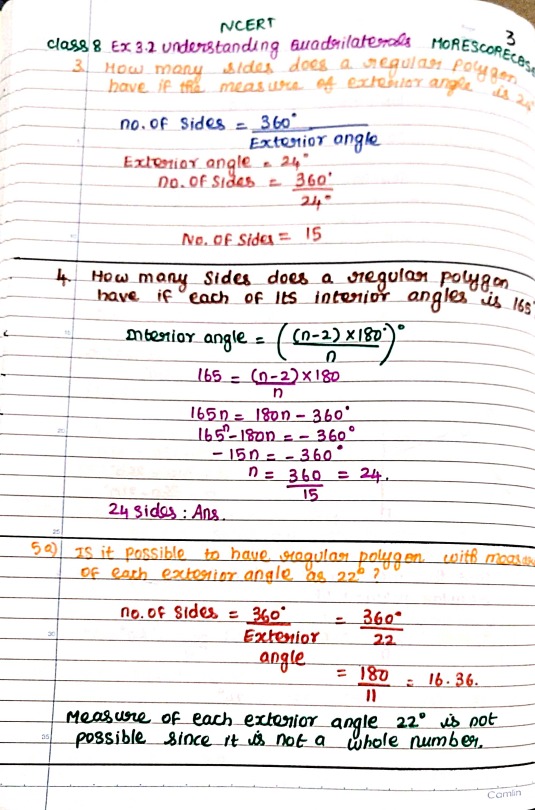 NCERT
3
class 8 Ex 3.2 understanding Quadrilaterals MORESCORECBSE
3. How many sides does a regular polygon
have if the measure of exterior angle is 24°
no. of Sides = 360° / Exterior angle
Exterior angle = 24°
no. of Sides = 360° / 24°
No. of Sides = 15
4. How many Sides does a regular polygon
have if each of its interior angles is 165°
Interior angle = ((n-2) × 180° / n)°
165 = (n-2) × 180 / n
165n = 180n - 360°
165n - 180n = - 360°
- 15n = - 360°
n = 360 / 15 = 24.
24 sides : Ans.
5a) Is it possible to have regular polygon with measure
of each exterior angle as 22° ?
no. of Sides = 360° / Exterior angle = 360° / 22
= 180 / 11 = 16.36.
Measure of each exterior angle 22° is not
possible since it is not a whole number.
Camlin